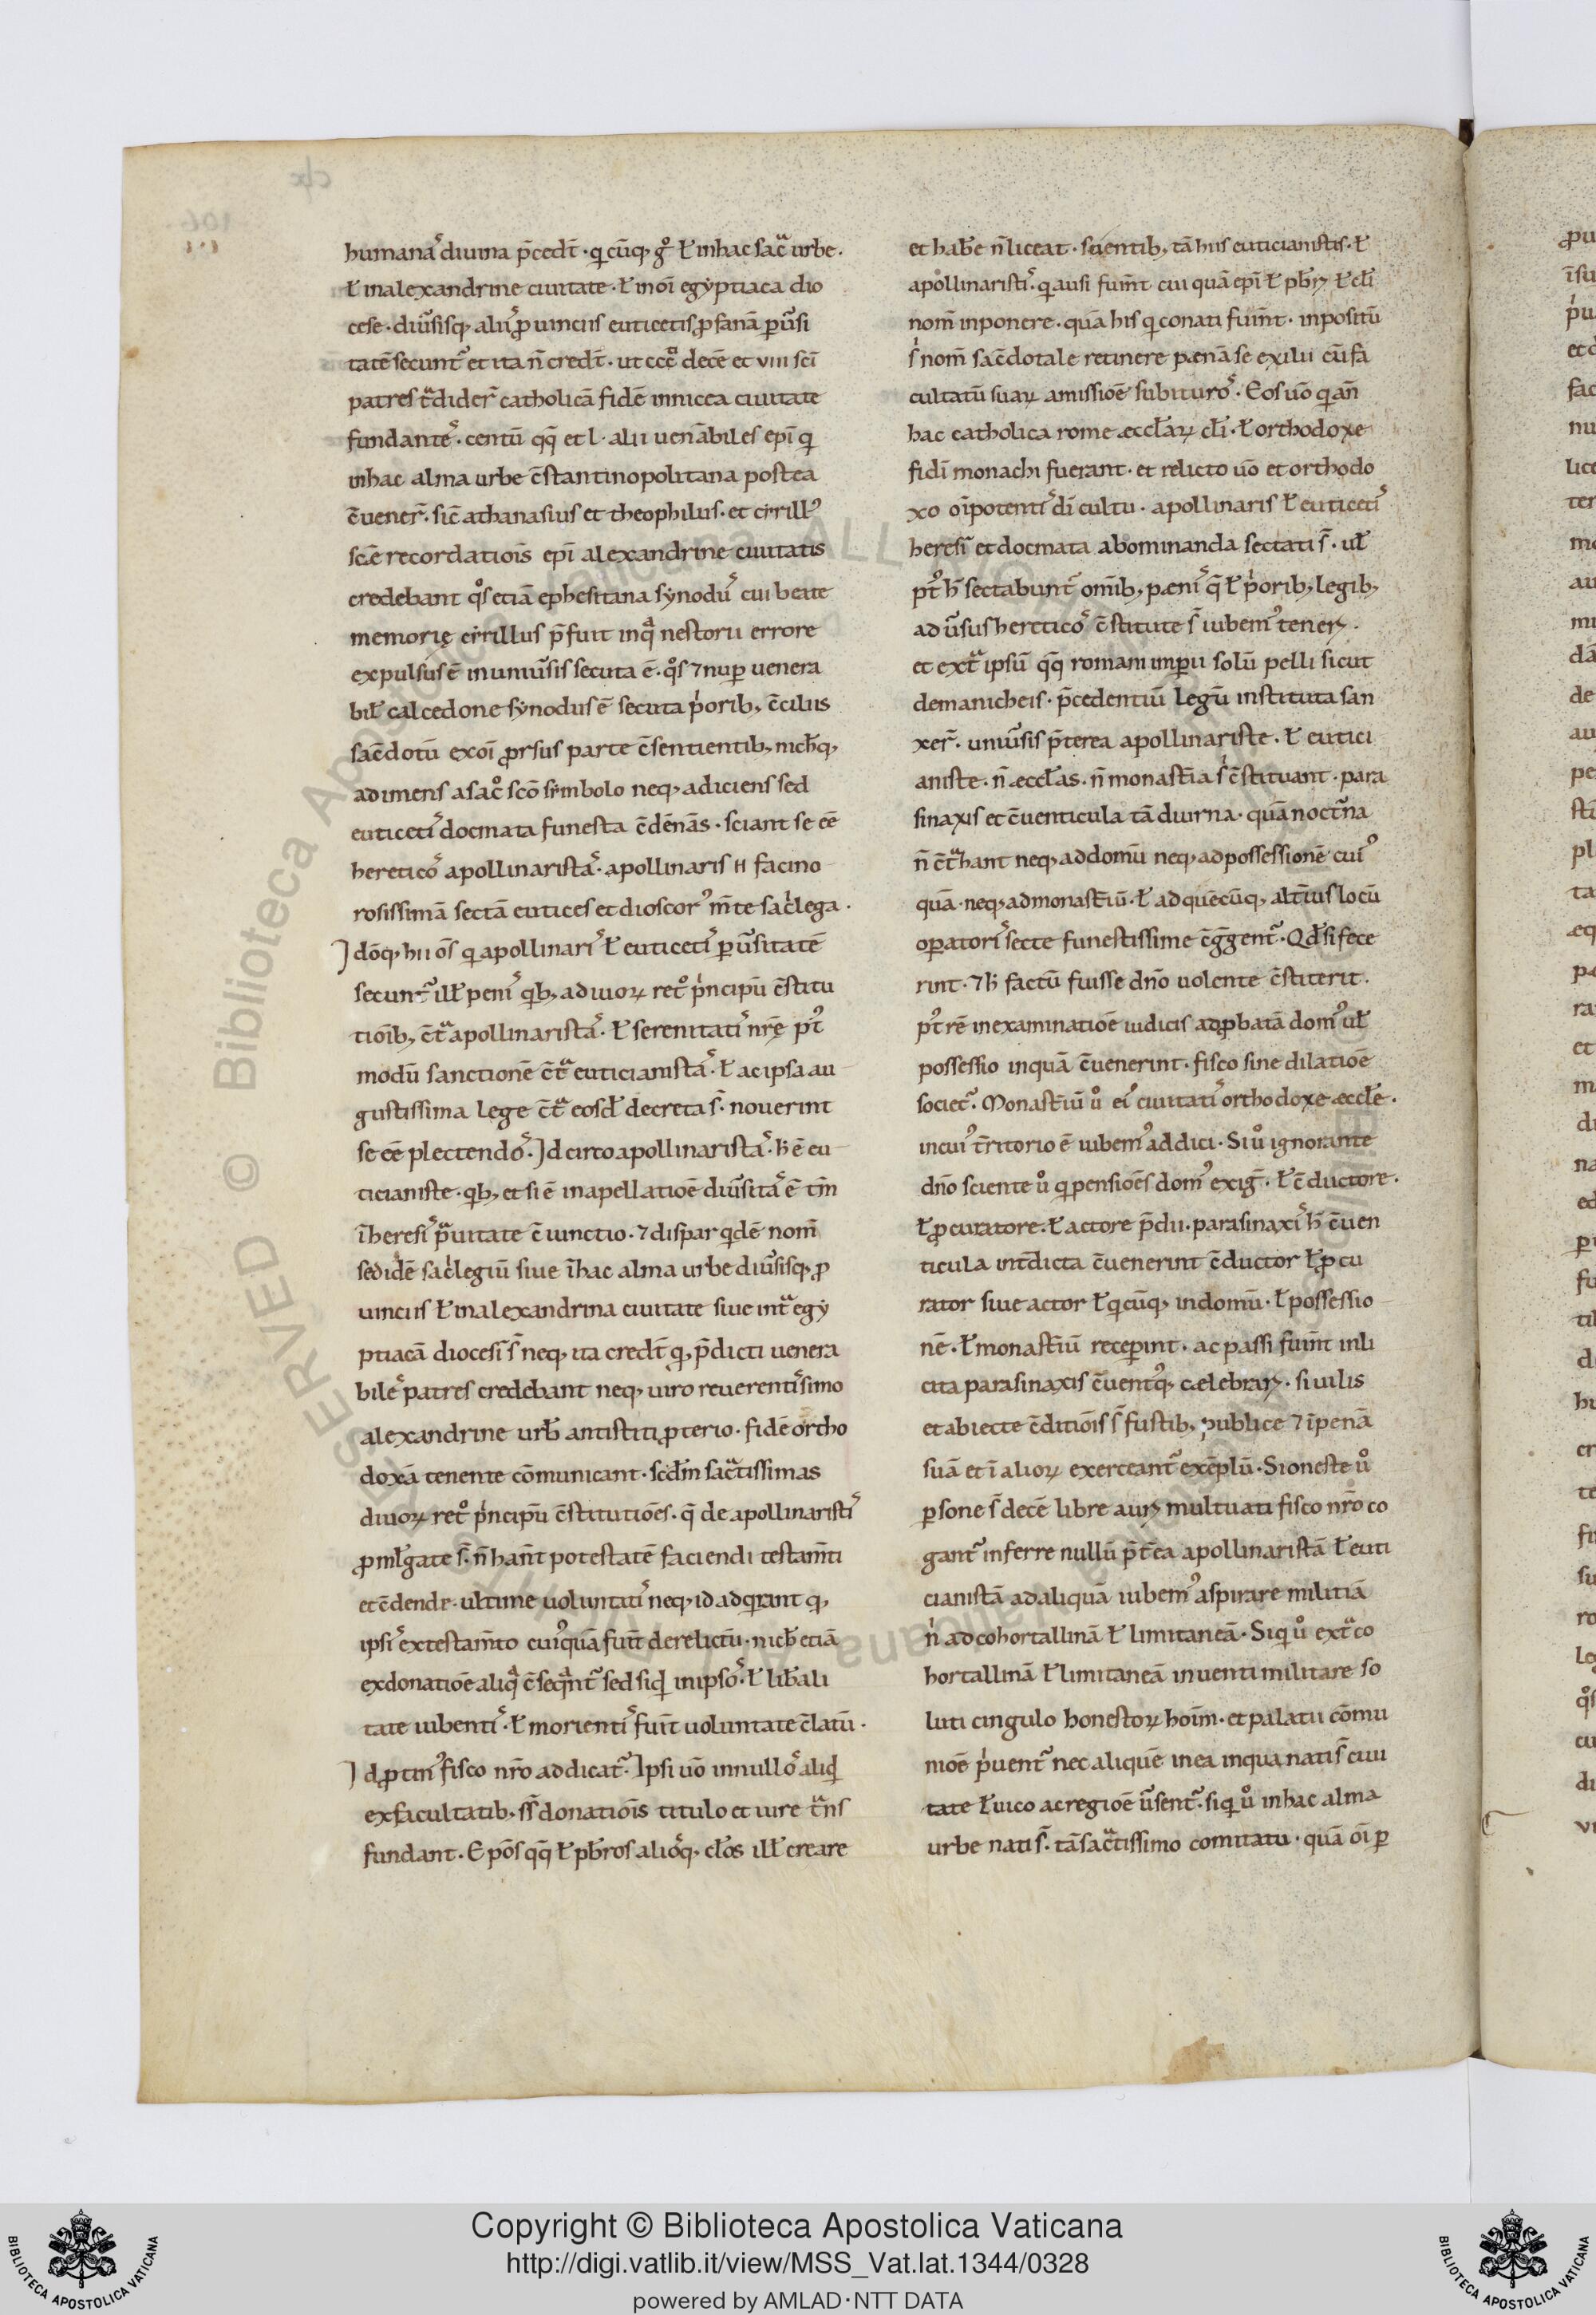 humanaʼ diuina p̄cedt̄ · qi cūq; gͦ ł inhac sacͣ urbe ·
ł inalexandrine ciuitate · ł inoī egẏptiaca dio
cese · diūsisq; aliiʼ ꝓuinciis euticetis ꝓfanā ꝑūsi
tatē secunt᷒ et ita n̄ credt̄ · ut cccͦ decē et viii scī
patres tͣdider̄ catholicā fidē innicea ciuitate
fundanteʼ · centū qq̄ et l · alii uenābiles epī qi
inhac alma urbe c̄stantinopolitana postea
c̄uener̄ · sic̄ athanasius et theophilus · et cẏrillꝰ
scē recordatioīs epī alexandrine ciuitatis
credebant qͦs etiā ephesitana sẏnoduʼ cui beate
memorię cẏrillus p̄fuit inqͣ nestorii errore
expulsus ē inuniūsis secuta ē · qͦs ⁊ nuꝑ uenera
bił calcedone sẏnodus ē secuta pⁱorib; c̄ciliis
sac̄dotū exoī ꝓrsus parte c̄sentientib; nich̄q;
adimens asacͦ scō sẏmbolo neq; adiciens sed
euticetiʼ docmata funesta c̄dēnās · sciant se eē
hereticoʼ apollinaristaʼ · apollinaris H facino
rosissimā sectā eutices et dioscorꝰ m̄te sacⁱlega ·
Jdōq; hii oīs qi apollinariʼ ł euticetiʼ ꝑūsitatē
secunt᷒ ill̄ peniʼ qib; adiuoꝝ retͦ pⁱncipū c̄stitu
tioīb; c̄tͣ apollinaristaʼ · ł serenitatiʼ nrę̄ pt̄ꝰ
modū sanctionē c̄tͣ euticianistaʼ · ł ac ipsa au
gustissima lege c̄tͣ eosd̄ decreta s̄ · nouerint
se eē plectendoʼ · Jdcirco apollinaristaʼ · h̄ ē eu
ticianiste · qib; et si ē inapellatioē diūsitaʼ ē tm̄
ī heresiʼ pͣuitate c̄iunctio · ⁊ dispar qidē nom̄
sed idē sacⁱlegiū siue ī hac alma urbe diūsisq; ꝓ
uinciis ł inalexandrina ciuitate siue intͣ egẏ
ptiacā diocesiʼ s̄ neq; ita credt̄ q; p̄dicti uenera
bileʼ patres credebant neq; uiro reuerentiʼsimo
alexandrine urb̄ antistiti ꝓterio · fidē ortho
doxā tenente cōmunicant · scd̄m sacͣtissimas
diuoꝝ retͦ pⁱncipū c̄stitutioēs · q̄ de apollinaristiʼ
ꝓml̄gate s̄ · n̄ han̄t potestatē faciendi testam̄ti
et c̄dendr · ultime uoluntatiʼ neq; id adqirant q;
ipsiʼ extestam̄to cuiꝰquā fuit̄ derelictū · nich̄ etiā
exdonatioē aliqͣ c̄seqͣnt᷒ sed siqid inipsoʼ · ł lib̄ali
tate uibentiʼ · ł morientiʼ fuit̄ uoluntate c̄latū ·
Jd ꝓtinꝰ fisco nr̄o addicat᷒ · Ipsi uō innulloʼ aliqid
exfacultatib; · ss̄ donatioīs titulo et iure tͣns
fundant · Epōs qq̄ ł pb̄ros alioʼq; cl̄os ill̄ creare
et hab̄e n̄ liceat · scientib; tā hiis euticianistis · ł
apollinaristiʼ · qi ausi fuin̄t cui quā epī ł pb̄rꝫ ł cl̄i
nom̄ inponere · quā his qi conati fuin̄t · inpositū
sⁱ nom̄ sac̄dotale retinere pænā se exilii cū fa
cultatū suaꝝ amissioē subituroʼ · Eos uō qi an̄
hac catholica rome æccl̄aꝝ cl̄i · ł orthodoxe
fidī monachi fuerant · et relicto uō et orthodo
xo oīpotentiʼ dī cultu · apollinaris ł euticetiʼ
heresiʼ et docmata abominanda sectati s̄ · ul̄
pt̄ꝰ h̄ sectabunt᷒ om̄ib; pæniʼ q̄ ł pⁱorib; legib;
adūsus hereticoʼ c̄stitute s̄ iubemꝰ tenerꝫ ·
et extͣ ipsū qq̄ romani imꝑii solū pelli sicut
demanicheis · p̄cedentiū legū instituta san
xer̄ · uniūsis p̄terea apollinariste · ł eutici
aniste · n̄ æccl̄as · n̄ monast̄ia sⁱ c̄stituant · para
sinaxis et c̄uenticula tā diurna · quā noct᷒na
n̄ c̄tͣhant neq; ad domū neq; ad possessionē cuiꝰ
quā · neq; ad monast̄iū · ł ad quēcūq; alt̄ius locū
oꝑatoriʼ secte funestissime c̄ḡgent᷒ · Qd̄ si fece
rint · ⁊ h̄ factū fuisse dn̄o uolente c̄stiterit ·
pt̄ rē inexaminatioē iudicis adꝓbatā domꝰ ul̄
possessio inquā c̄uenerint · fisco sine dilatioē
societ᷒ · Monast̄iū uͦ eiʼ ciuitatiʼ orthodoxe æccl̄e ·
incuiꝰ t̄ritorio ē iubemꝰ addici · Si uͦ ignorante
dn̄o sciente uͦ qi pensioēs domꝰ exiḡ · ł c̄ductore ·
ł ꝓcuratore · ł actore p̄dii · parasinaxiʼ h̄ c̄uen
ticula int̄dicta c̄uenerint c̄ductor ł ꝓcu
rator siue actor ł qicūq; indomū · ł possessio
nē · ł monast̄iū receꝑint · ac passi fuin̄t inli
cita parasinaxis c̄uentꝰq; cælebrarꝫ · si uilis
et abiecte c̄ditioīs s̄ fustib; publice ⁊ ī penā
suā et ī alioꝝ exerceant᷒ exēplū · Si oneste uͦ
ꝑsone s̄ decē libre aurꝫ multuati fisco nr̄o co
gant᷒ inferre nullū p̄t̄ea apollinaristā ł euti
cianistā ad aliquā iubemꝰ aspirare militiā
nⁱ ad cohortallinā ł limitaneā · Siqi uͦ extͣ co
hortallinā ł limitaneā inuenti militare so
luti cingulo honestoꝝ hoīm · et palatii cōmu
nioē pⁱuent᷒ nec aliquē in ea inqua nati s̄ ciui
tate ł uico ac regioē ūsent᷒ · siqi uͦ inhac alma
urbe nati s̄ · tā sacͣtissimo comitatu · quā oī ꝑ
Copyright © Biblioteca Apostolica Vaticana
http://digi.vatlib.it/view/MSS_Vat.lat.1344/0328
powered by AMLAD·NTT DATA